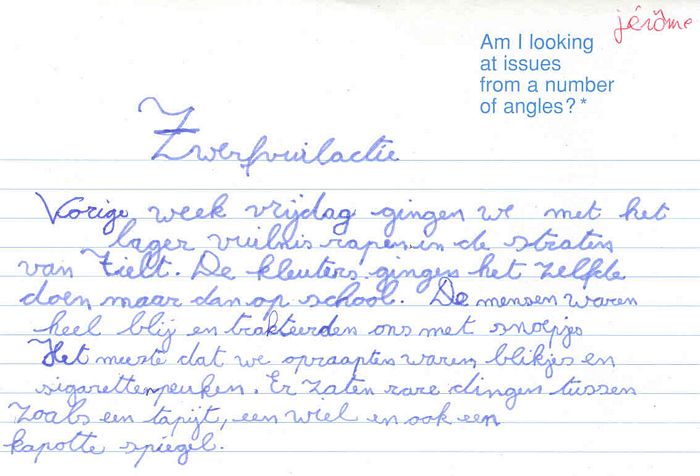 jérôme
Am I looking
at issues
from a number
of angles?*
Zwerfvuilactie
Vorige week vrijdag gingen we met het
lager vuilnis rapen in de straten
van Tielt. De kleuters gingen het zelfde
doen maar dan op school. De mensen waren
heel blij en trakteerden ons met snoepjes
Het meeste dat we opraapten waren blikjes en
sigarettenpeuken. Er zaten rare dingen tussen
zoals een tapijt, een wiel en ook een
kapotte spiegel.